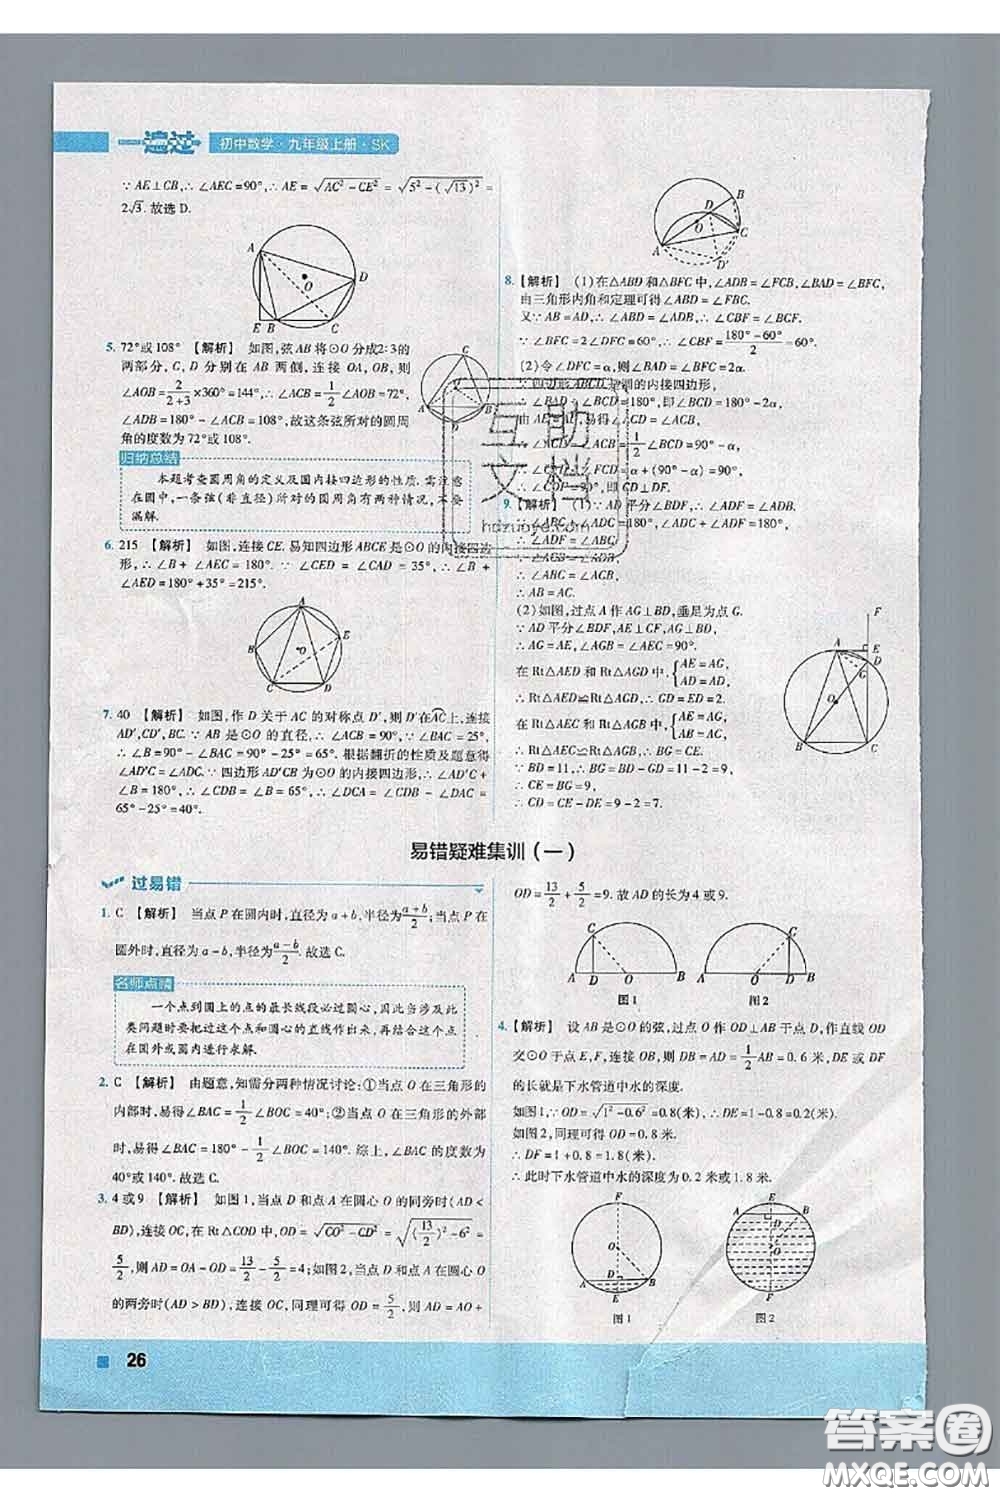 一遍过 初中数学·九年级上册·SK
∵AE⊥CB,∴∠AEC=90°,∴AE=√(AC²-CE²)=√(5²-(√13)²)=
2√3. 故选 D.
A
D
O
E B C
5. 72°或108° 【解析】 如图,弦 AB 将⊙O 分成2:3的
两部分, C, D 分别在 AB 两侧, 连接 OA, OB, 则
∠AOB=2/(2+3)×360°=144°, ∴∠ACB=1/2∠AOB=72°,
∠ADB=180°-∠ACB=108°. 故这条弦所对的圆周
角的度数为72°或108°.
归纳总结
本题考查圆周角的定义及圆内接四边形的性质,需注意
在圆中,一条弦(非直径)所对的圆周角有两种情况,不要
漏解.
6. 215 【解析】 如图,连接 CE. 易知四边形 ABCE 是⊙O 的内接四边
形,∴∠B+∠AEC=180°. ∵∠CED=∠CAD=35°,∴∠B+
∠AED=180°+35°=215°.
A
B E
O
C D
7. 40 【解析】 如图,作 D 关于 AC 的对称点 D′,则 D′在AC上,连接
AD′,CD′,BC. ∵AB 是⊙O 的直径,∴∠ACB=90°,∵∠BAC=25°,
∴∠B=90°-∠BAC=90°-25°=65°. 根据翻折的性质及题意得
∠AD′C=∠ADC. ∵四边形 AD′CB 为⊙O 的内接四边形,∴∠AD′C+
∠B=180°,∴∠CDB=∠B=65°,∴∠DCA=∠CDB-∠DAC=
65°-25°=40°.
B
D
O
C
A
D′
8. 【解析】 (1)在△ABD 和△BFC 中,∠ADB=∠FCB,∠BAD=∠BFC,
由三角形内角和定理可得∠ABD=∠FBC.
又∵AB=AD,∴∠ABD=∠ADB,∴∠CBF=∠BCF.
∵∠BFC=2∠DFC=60°,∴∠CBF=(180°-60°)/2=60°.
(2)令∠DFC=α,则∠BAD=∠BFC=2α.
∵四边形ABCD是圆的内接四边形,
∴∠BAD+∠BCD=180°,即∠BCD=180°-2α.
由 AB=AD,易得∠ACD=∠ACB,
∴∠ACD=∠ACB=1/2∠BCD=90°-α,
∴∠ACD+∠DFC=α+(90°-α)=90°,
∴∠CDF=90°,即 CD⊥DF.
9. 【解析】 (1)∵AD 平分∠BDF,∴∠ADF=∠ADB.
∠ABC+∠ADC=180°,∠ADC+∠ADF=180°,
∴∠ADF=∠ABC.
∵∠ACB=∠ADB,
∴∠ABC=∠ACB,
∴AB=AC.
(2)如图,过点 A 作 AG⊥BD,垂足为点 G.
∵AD 平分∠BDF,AE⊥CF,AG⊥BD,
∴AG=AE,∠AGB=∠AEC=90°.
在 Rt△AED 和 Rt△AGD 中,{AE=AG,AD=AD,
∴Rt△AED≌Rt△AGD,∴GD=ED=2.
在 Rt△AEC 和 Rt△AGB 中,{AE=AG,AB=AC,
∴Rt△AEC≌Rt△AGB,∴BG=CE.
∵BD=11,∴BG=BD-GD=11-2=9,
∴CE=BG=9,
∴CD=CE-DE=9-2=7.
F
A E
D
G
O
B C
易错疑难集训(一)
过易错
1. C 【解析】 当点 P 在圆内时,直径为 a+b,半径为(a+b)/2;当点 P 在
圆外时,直径为 a-b,半径为(a-b)/2. 故选 C.
名师点睛
一个点到圆上的点的最长线段必过圆心,因此当涉及此
类问题时要把过这个点和圆心的直线作出来,再结合这个点
在圆外或圆内进行求解.
2. C 【解析】 由题意,知需分两种情况讨论:①当点 O 在三角形的
内部时,易得∠BAC=1/2∠BOC=40°;②当点 O 在三角形的外部
时,易得∠BAC=180°-1/2∠BOC=140°. 综上,∠BAC 的度数为
40°或140°. 故选 C.
3. 4或9 【解析】 如图1,当点 D 和点 A 在圆心 O 的同旁时(AD<
BD),连接 OC,在 Rt△COD 中,OD=√(CO²-CD²)=√((13/2)²-6²)=
5/2,则 AD=OA-OD=13/2-5/2=4;如图2,当点 D 和点 A 在圆心 O
的两旁时(AD>BD),连接 OC,同理可得 OD=5/2,则 AD=AO+
OD=13/2+5/2=9. 故 AD 的长为4或9.
C
A D O B
图1
C
A O D B
图2
4. 【解析】 设 AB 是⊙O 的弦,过点 O 作 OD⊥AB 于点 D,作直线 OD
交⊙O 于点 E,F,连接 OB,则 DB=AD=1/2AB=0.6 米,DE 或 DF
的长就是下水管道中水的深度.
如图1,∵OD=√(1²-0.6²)=0.8(米),∴DE=1-0.8=0.2(米).
如图2,同理可得 OD=0.8 米.
∴DF=1+0.8=1.8(米).
∴此时下水管道中水的深度为0.2米或1.8米.
F
O
A D B
E
图1
E
A D B
O
F
图2
26
互助
文档
hdzuoye.com
答案圈
MXQE.COM